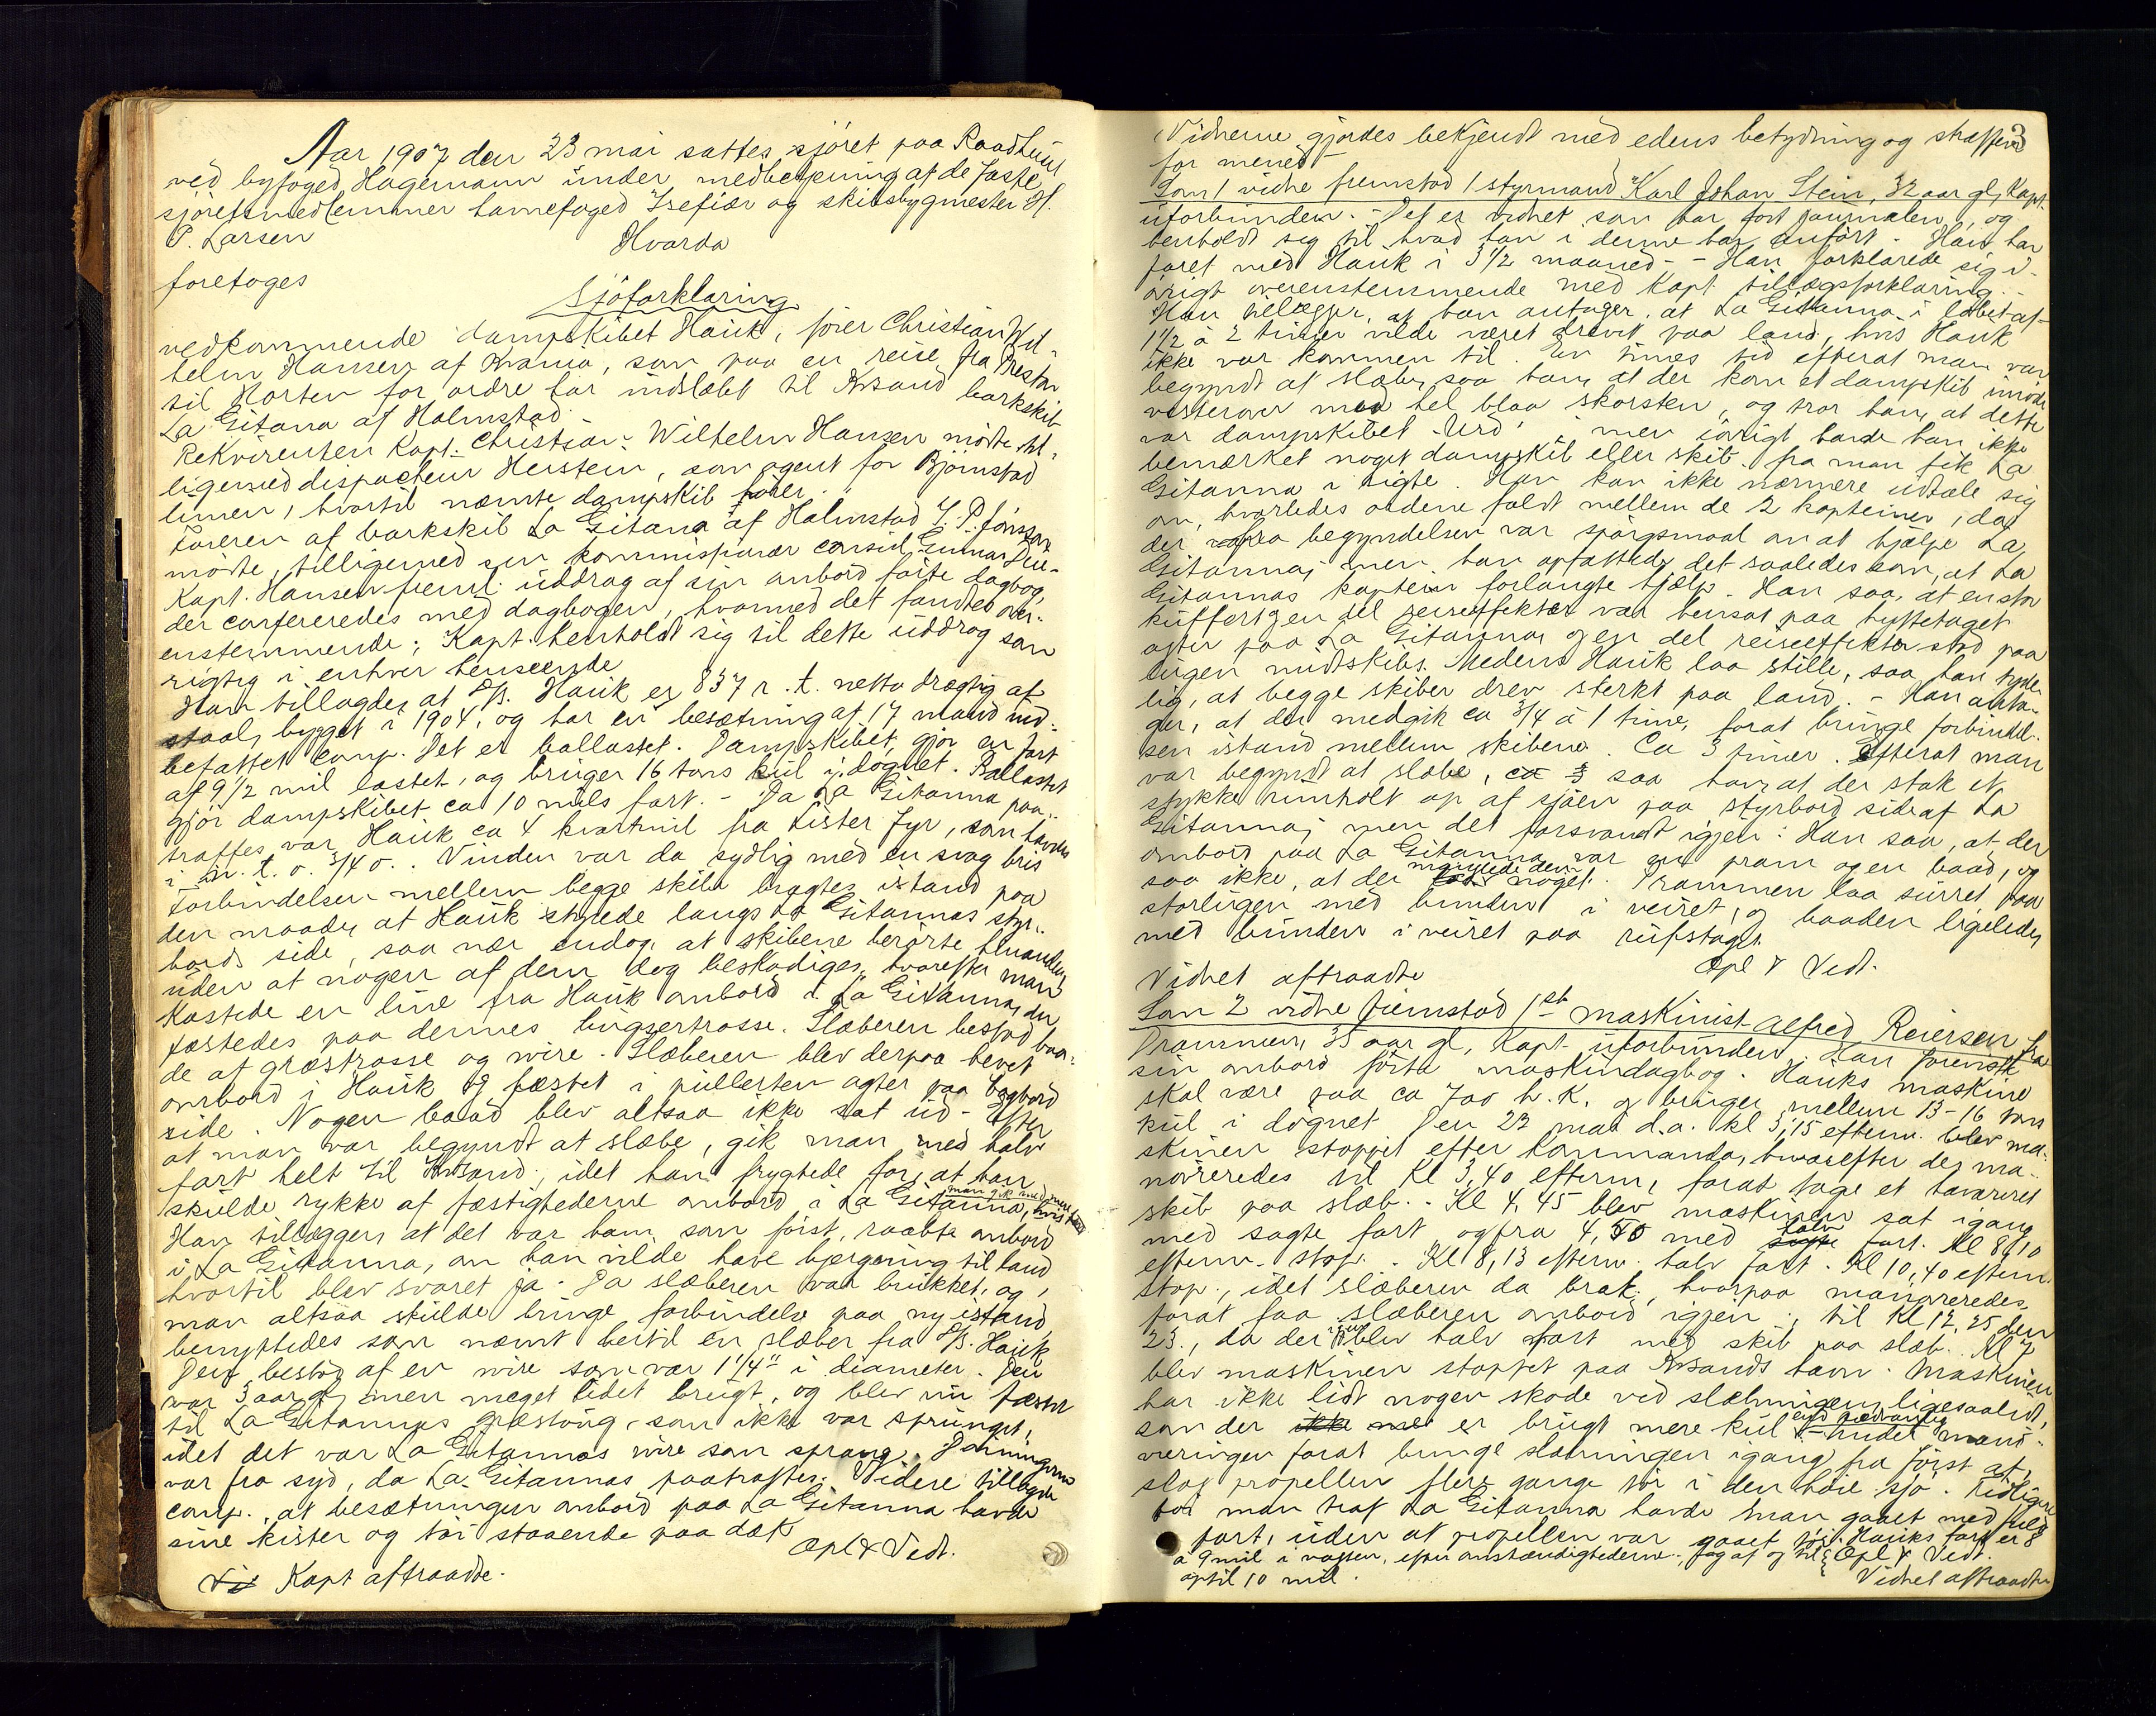 Aar 1907 den 23 mai sattes sjøret paa Raadhuset
ved byfoged Hagemann under medbetjening af de faste
sjøretsmedlemmer havnefoged Isefiær og skibsbygmester H.
P. Larsen
Hvorda
foretoges
Sjøforklaring
vedkommende dampskibet Hauk, fører Christian Wil-
helm Hansen af , som paa en reise fra Preston
til Horten for ordre har indslæbt til Krsand barkskib
La Gitana af Halmstad.
Rekvirenten Kapt. Christian Wilhelm Hansen mødte til-
ligemed dispacheur Herstein, som agent for Bjørnstad
linien, hvortil nævnte dampskib hører.
Føreren af barkskib La Gitana af Halmstad J. P. Jönsson
mødte, tilligemed sin kommissionær consul Gunnar
Kapt. Hansen freml. uddrag af sin ombord førte dagbog,
der confereredes med dagbogen, hvormed det fandtes over-
ensstemmende; Kapt. henholdt sig til dette uddrag som
rigtig i enhver henseende
Han tillagde, at D/S. Hauk er 837 r. t. netto drægtig af
staal, bygget i 1904, og har en besætning af 17 mand ind-
befattet comp. Det er ballastet. Dampskibet gjør en fart
af 9 1/2 mil lastet, og bruger 16 tons kul i døgnet. Ballastet
gjør dampskibet ca 10 mils fart. - Da La Gitanna paa-
traffes var Hauk ca 4 kvartmil fra Lister Fyr, som havdes
i n. t. o. 3/4 o. . Vinden var da sydlig med en svag bris
Forbindelsen mellem begge skibe bragtes istand paa
den maade, at Hauk styrede langs La Gitannas styr-
bords side, saa nær endog, at skibene berørte hinanden
uden at nogen af dem dog beskadiges, hvorefter man
kastede en line fra Hauk ombord i La Gitanna, der
fæstedes paa dennes bugsertrosse. Slæberen bestod baa-
de af græstrosse og wire. Slæberen blev derpaa hevet
ombord i Hauk og fæstet i pullerten agter paa bagbord
side. Nogen baad blev altsaa ikke sat ud - Efter
at man var begyndt at slæbe, gik man med halv
fart helt til Krsand, idet han frygtede for, at han
skulde rykke af fæstighederne ombord i La Gitanna, hvis man gik med mere fart
Han tillægger, at det var ham, som først, raabte ombord
i La Gitanna, om han vilde have bjergning til land
hvortil blev svaret ja. Da slæberen var brukket, og
man altsaa skulde bringe forbindelse paa ny istand,
benyttedes som nævnt hertil en slæber fra D/S. Hauk
Den bestod af en wire som var 1 1/4" i diameter. Den
var 3 aar gl, men meget lidet brugt, og blev nu fæstet
til La Gitannas græstoug, som ikke var sprunget,
idet det var La Gitannas wire som sprang. Dønningerne
var fra syd, da La Gitannas paatraffes. Videre tillagde
comp., at besætningen ombord paa La Gitanna havde
sine kister og tøi staaende paa dæk
Opl & Vedt.
Vi Kapt aftraadte.
3
Vidnerne gjordes bekjendt med edens betydning og straffen
for mened -
Som 1 vidne fremstod 1 styrmand Karl Johan Stein, 32 aar gl, Kapt.
uforbunden. - Det er vidnet som har ført journalen, og
henholdt sig til hvad han i denne har anført. Han har
faret med Hauk i 3 1/2 maaned - - Han forklarede sig i-
øvrigt overensstemmende med Kapt. tillægsforklaring. -
Han tillægger, at han antager, at La Gitanna i løbet af
1 1/2 à 2 timer vilde været drevet paa land, hvis Hauk
ikke var kommen til. En times tid efterat man var
begyndt at slæbe, saa han, at der kom et dampskib imøde
vesterover med hel blaa skorsten, og tror han, at dette
var dampskibet "Urd", men iøvrigt havde han ikke
bemærket noget dampskib eller skib, fra man fik La
Gitanna i sigte. Han kan ikke nærmere udtale sig
om, hvorledes ordene faldt mellem de 2 kapteiner, da
der fra begyndelsen var spørgsmaal om at hjælpe La
Gitanna; men han opfattede det saaledes som, at La
Gitannas kaptein forlangte hjælp. Han saa, at en stor
kuffert en del reiseeffekter var hensat paa hyttetaget
agter paa La Gitanna, og en del reiseeffekter stod paa
lugen midtskibs. Medens Hauk laa stille, saa han tyde-
lig, at begge skiber drev sterkt paa land. - Han anta-
ger, at der medgik ca 3/4 à 1 time, forat bringe forbindel-
sen istand mellem skibene. Ca 3 timer efterat man
var begyndt at slæbe, ca 3 saa han, at der stak et
stykke rundholt op af sjøen paa styrbord side af La
Gitanna; men det forsvandt igjen. Han saa, at der
ombord paa La Gitanna var en pram og en baad, og
saa ikke, at der manglede dem noget. Prammen laa surret paa
storlugen med bunden i veiret, og baaden ligeledes
med bunden i veiret paa ruftaget
Opl & Vedt.
Vidnet aftraadte
Som 2 vidne fremstod 1ste maskinist Alfred Reiersen fra
Drammen, 35 aar gl, Kapt. uforbunden. Han foreviste
sin ombord førte maskindagbog. Hauks maskine
skal være paa ca 700 h. K. og bruger mellem 13-16 tons
kul i døgnet Den 22 mai d.a. kl 3,15 efterm. blev ma-
skinen stoppet efter kommando, hvorefter der ma-
nøvreredes til Kl 3,40 efterm, forat tage et havareret
skib paa slæb. - Kl 4,45 blev maskinen sat igang
med sagte fart, og fra 4,50 med halv fart. Kl 8,10
efterm. stop. - Kl 8,13 efterm. halv fart. Kl 10,40 efterm
stop, idet slæberen da brak, hvorpaa manøvreredes
forat faa slæberen ombord igjen; til Kl 12,25 den
23., da der igjen blev halv fart med skib paa slæb. Kl 7
blev maskinen stoppet paa Krsands havn. Maskinen
har ikke lidt nogen skade ved slæbningen, ligesaalidt,
som der ikke med er brugt mere kul end sædvanlig - Under manø-
vreringen forat bringe slæbningen igang fra først af,
slog propellen flere gange tør i den høie sjø. Tidligere
før man traf La Gitanna havde man gaaet med fuld
fart, uden at propellen var gaaet tør. Hauks fart er 8
à 9 mil i vagten, efter omstændighederne, og af og til
optil 10 mil.
Opl & Vedt.
Vidnet aftraadte